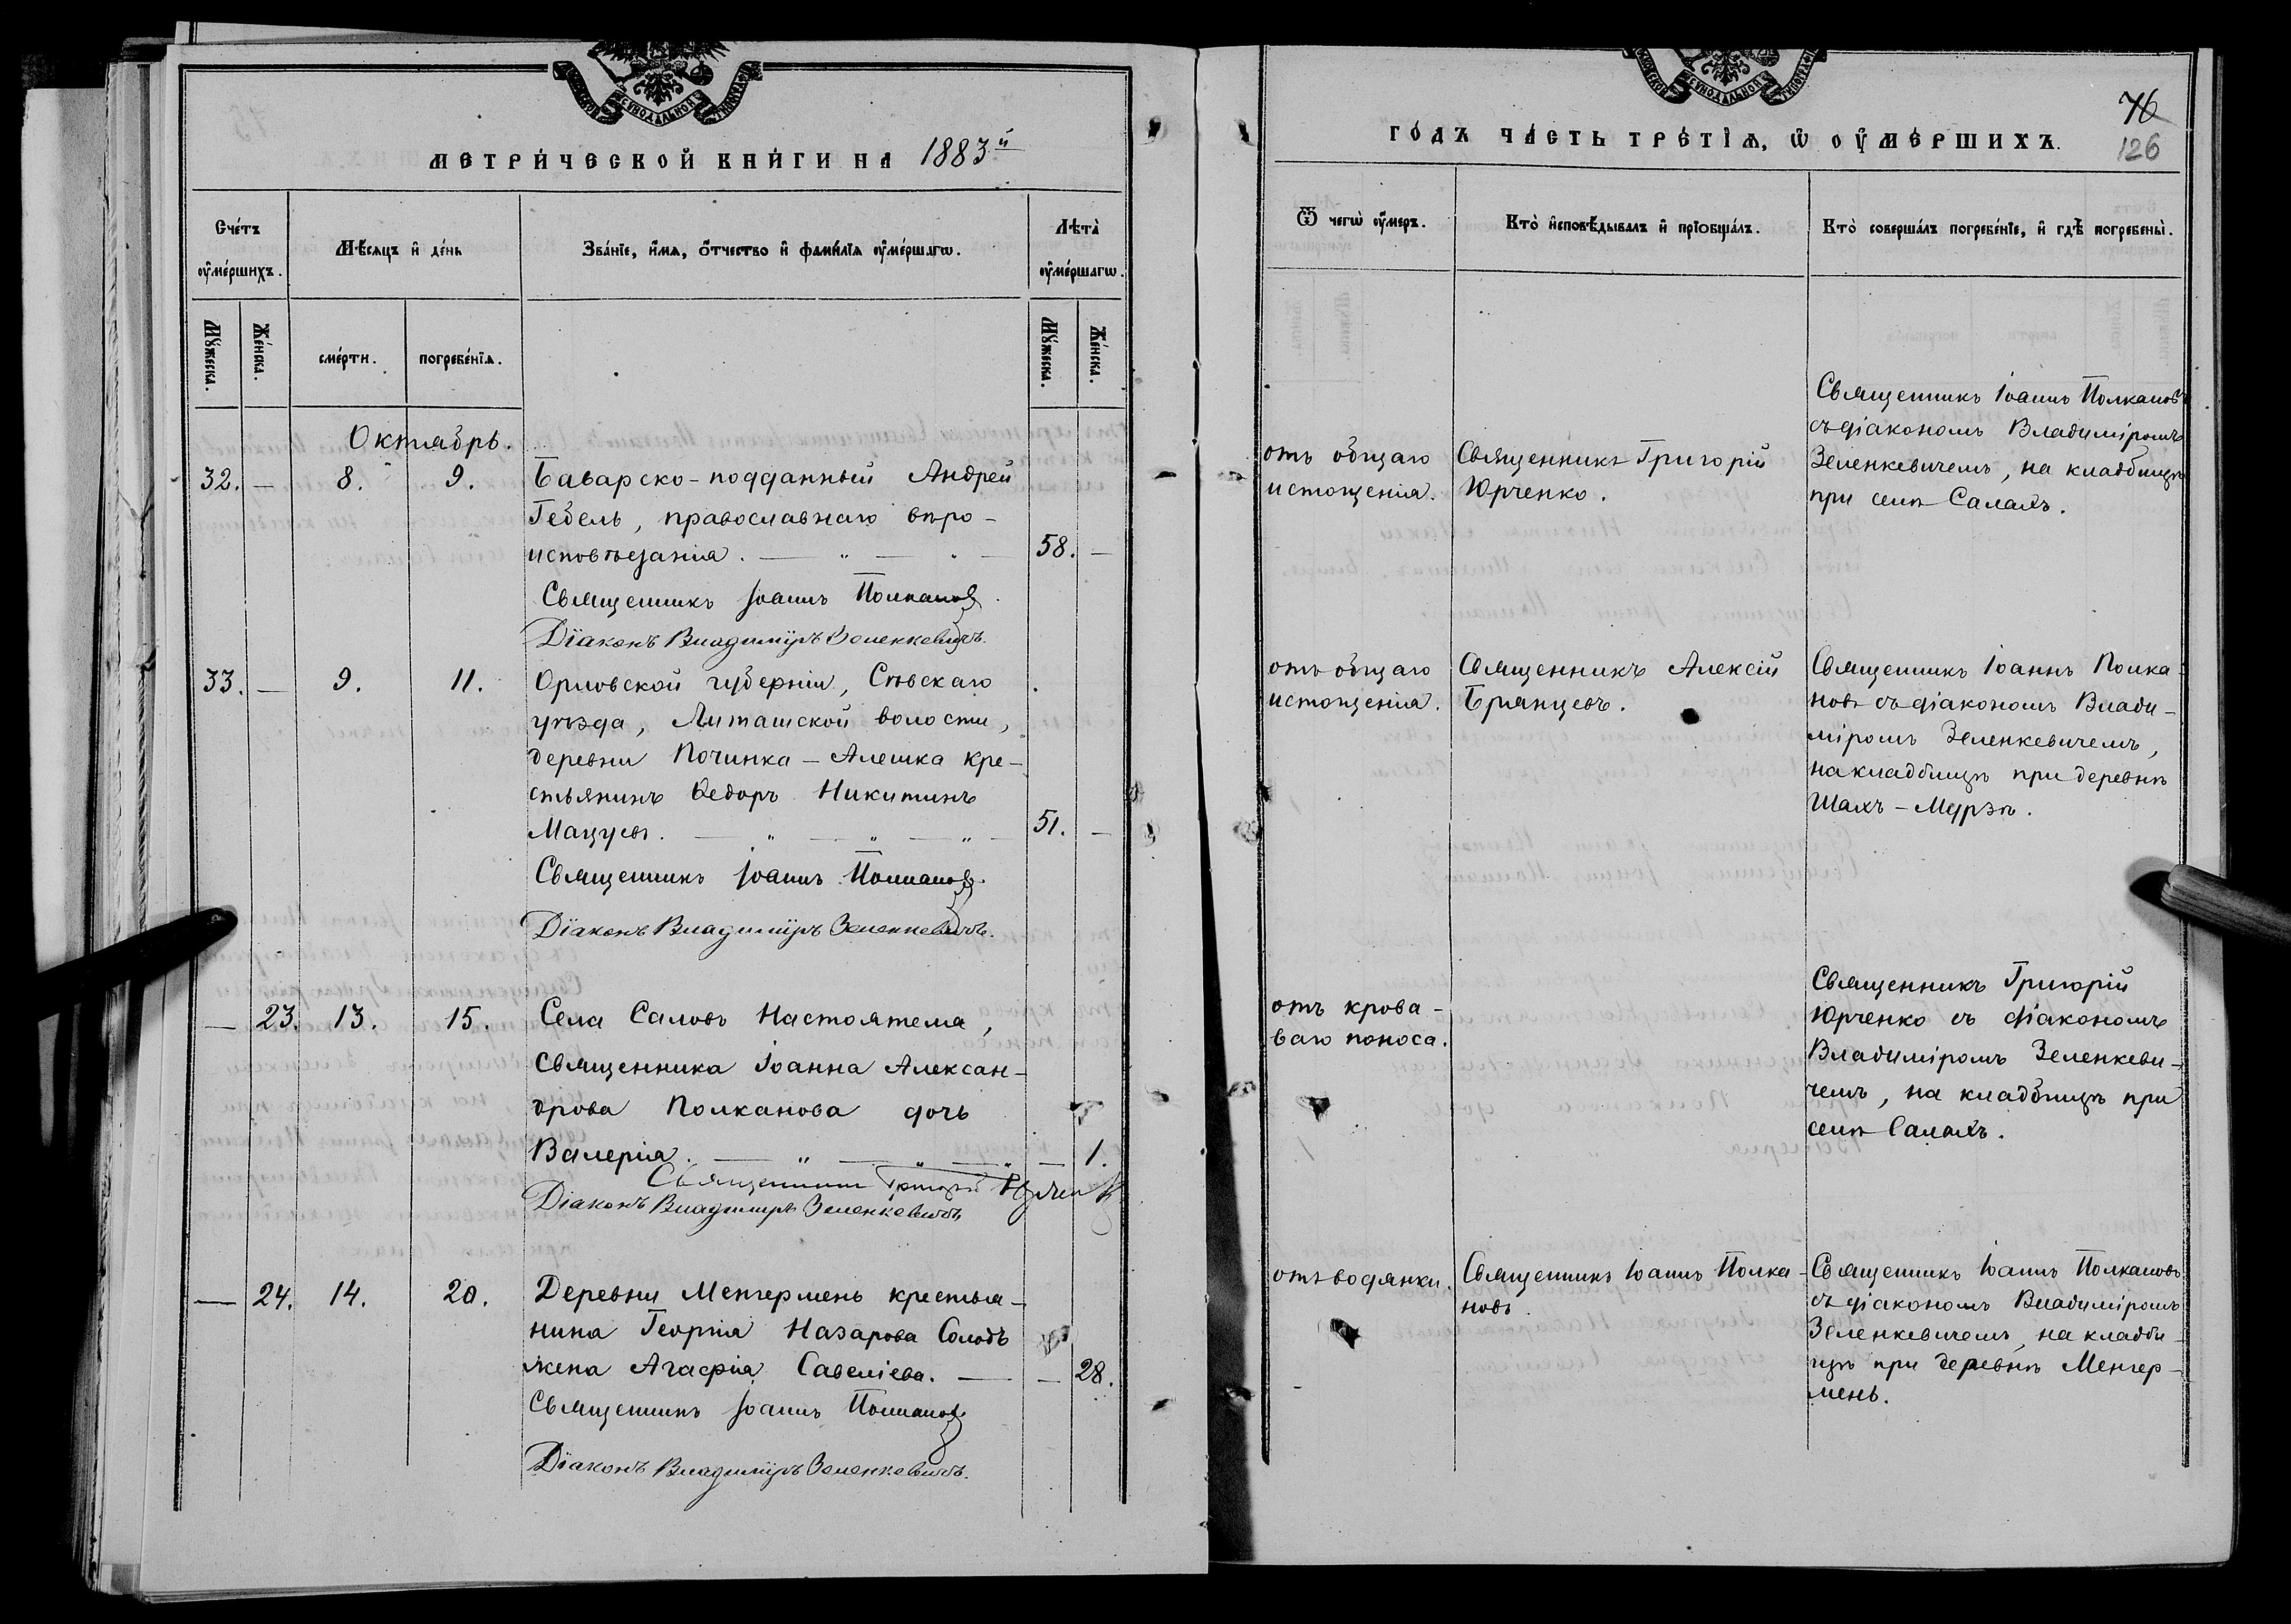 МЕТРИ́ЧЕСКОЙ КНИ́ГИ НА 1883й
Сче́тъ оу҆ме́ршихъ.
Мѣ́сяцъ и҆ де́нь
Зва́нїе, и҆́мѧ, ѻ҆́тчество и҆ фами́лїѧ оу҆ме́ршагѡ.
Лѣта̀ оу҆ме́ршагѡ.
Мꙋ́жеска.
Же́нска.
сме́рти.
погребе́нїѧ.
Мꙋ́жеска.
Же́нска.
Октябрь.
32. — 8. 9. Баварско-подданный Андрей
Гебель, православнаго вѣро-
исповѣданія. — 58. —
Священникъ Іоаннъ Полкановъ
Діаконъ Владиміръ Зеленкевичъ.
33. — 9. 11. Орловской губерніи, Сѣвскаго
уѣзда, Литашской волости,
деревни Починка-Алешка кре-
стьянинъ Ѳедоръ Никитинъ
Мацуевъ. — 51. —
Священникъ Іоаннъ Полкановъ
Діаконъ Владиміръ Зеленкевичъ.
— 23. 13. 15. Села Саловъ Настоятеля,
Священника Іоанна Алексан-
дрова Полканова дочь
Валерія. — 1.
Священникъ Григорій Юрченко
Діаконъ Владиміръ Зеленкевичъ
— 24. 14. 20. Деревни Менгермень крестья-
нина Георгія Назарова Солодъ
жена Агафія Савеліева. — 28.
Священникъ Іоаннъ Полкановъ
Діаконъ Владиміръ Зеленкевичъ.
ГО́ДЪ ЧА́СТЬ ТРЕ́ТЇѦ, Ѡ҆ ОУ҆МЕ́РШИХЪ.
76
126
Ѿ чегѡ̀ оу҆́меръ.
Кто̀ и҆сповѣ́дывалъ и҆ прїобща́лъ.
Кто̀ соверша́лъ погребе́нїе, и҆ гдѣ̀ погребены̀.
отъ общаго
истощенія.
Священникъ Григорій
Юрченко.
Священникъ Іоаннъ Полкановъ
съ діакономъ Владиміромъ
Зеленкевичемъ, на кладбищѣ
при селѣ Салахъ.
отъ общаго
истощенія.
Священникъ Алексій
Брянцевъ.
Священникъ Іоаннъ Полка-
новъ съ діакономъ Влади-
міромъ Зеленкевичемъ,
на кладбищѣ при деревнѣ
Шахъ-Мурзѣ.
отъ крова-
ваго поноса.
Священникъ Григорій
Юрченко съ діакономъ
Владиміромъ Зеленкеви-
чемъ, на кладбищѣ при
селѣ Салахъ.
отъ водянки.
Священникъ Іоаннъ Полка-
новъ.
Священникъ Іоаннъ Полкановъ
съ діакономъ Владиміромъ
Зеленкевичемъ, на кладби-
щѣ при деревнѣ Менгер-
мень.